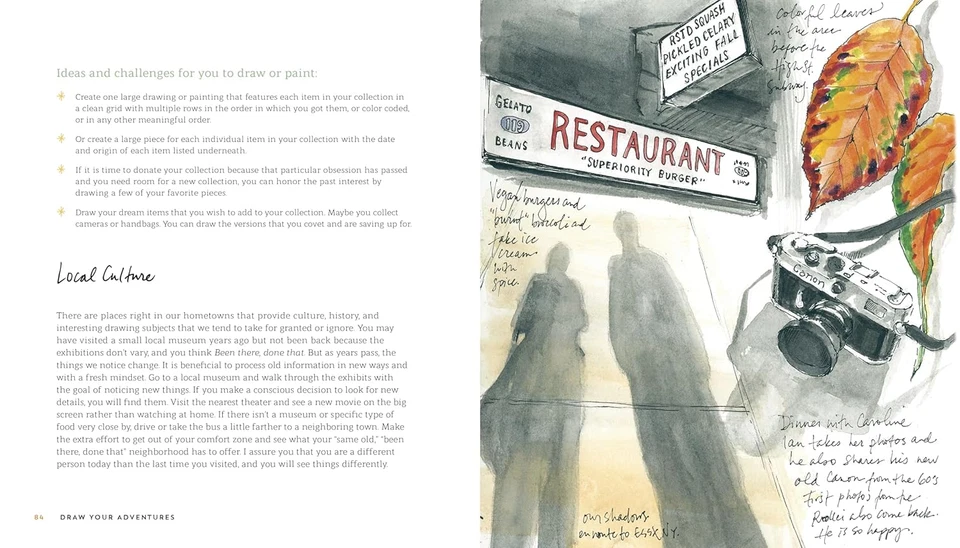 Ideas and challenges for you to draw or paint:
Create one large drawing or painting that features each item in your collection in
a clean grid with multiple rows in the order in which you got them, or color coded,
or in any other meaningful order.
Or create a large piece for each individual item in your collection with the date
and origin of each item listed underneath.
If it is time to donate your collection because that particular obsession has passed
and you need room for a new collection, you can honor the past interest by
drawing a few of your favorite pieces.
Draw your dream items that you wish to add to your collection. Maybe you collect
cameras or handbags. You can draw the versions that you covet and are saving up for.
Local Culture
There are places right in our hometowns that provide culture, history, and
interesting drawing subjects that we tend to take for granted or ignore. You may
have visited a small local museum years ago but not been back because the
exhibitions don't vary, and you think Been there, done that. But as years pass, the
things we notice change. It is beneficial to process old information in new ways and
with a fresh mindset. Go to a local museum and walk through the exhibits with
the goal of noticing new things. If you make a conscious decision to look for new
details, you will find them. Visit the nearest theater and see a new movie on the big
screen rather than watching at home. If there isn't a museum or specific type of
food very close by, drive or take the bus a little farther to a neighboring town. Make
the extra effort to get out of your comfort zone and see what your "same old," "been
there, done that" neighborhood has to offer. I assure you that you are a different
person today than the last time you visited, and you will see things differently.
84 DRAW YOUR ADVENTURES
RSTD SQUASH
PICKLED CELARY
EXCITING FALL
SPECIALS
colorful leaves
in the area
before the
High St.
Subway.
GELATO
119
BEANS
RESTAURANT
"SUPERIORITY BURGER"
Vegan burgers and
"burnt" broccoli and
fake ice
cream
with
spice.
Canon
Dinner with Caroline
Ian takes her photos and
he also shares his new
old Canon from the 60's
first photos from the
Rollei also come back.
He is so happy.
our shadows
en route to ESSX NY.